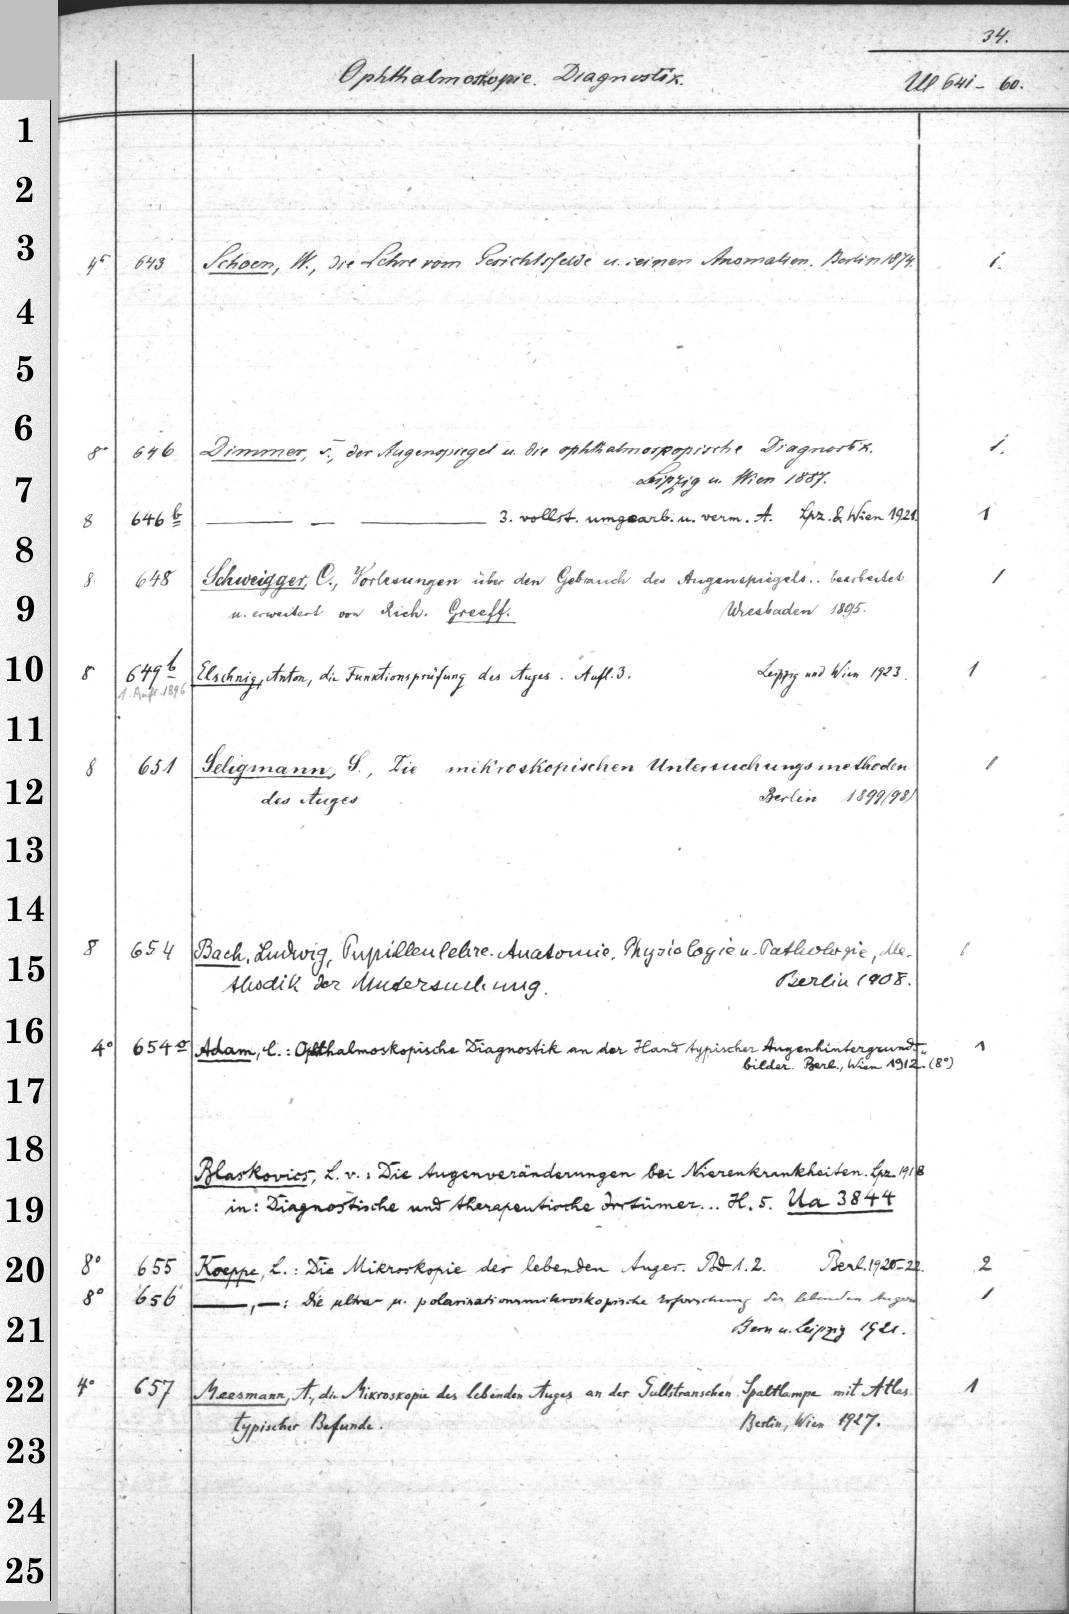 34.
Ophthalmoskopie. Diagnostik. Ul 641-60.
1
2
3
4° 643 Schoen, W., die Lehre vom Gesichtsfelde u. seinen Anomalien. Berlin 1874. 1.
4
5
6
8° 646 Dimmer, F., der Augenspiegel u. die ophthalmoskopische Diagnostik. 1.
7
Leipzig u. Wien 1887.
8 646 b ——— — ——— 3. vollst. umgearb. u. verm. A. Lpz. & Wien 1921. 1
8
8. 648 Schweigger, C., Vorlesungen über den Gebrauch des Augenspiegels.. bearbeitet 1
9
u. erweitert von Rich. Greeff. Wiesbaden 1895.
10
8 649 b Elschnig, Anton, die Funktionsprüfung des Auges. Aufl. 3. Leipzig und Wien 1923. 1
1. Aufl. 1896
11
8 651 Seligmann, S., Die mikroskopischen Untersuchungsmethoden 1
12
des Auges Berlin 1899/98/
13
14
8 654 Bach, Ludwig, Pupillenlehre. Anatomie. Physiologie u. Pathologie, Me- 1
15
thodik der Untersuchung. Berlin 1908.
16
4° 654 a Adam, C.: Ophthalmoskopische Diagnostik an der Hand typischer Augenhintergrund- 1
bilder. Berl., Wien 1912. (8°)
17
18
Blaskovics, L. v.: Die Augenveränderungen bei Nierenkrankheiten. Lpz. 1918
19
in: Diagnostische und therapeutische Irrtümer... H. 5. Ua 3844
20
8° 655 Koeppe, L.: Die Mikroskopie des lebenden Auges. Bd 1.2. Berl. 1920-22. 2
8° 656 ———, —: Die ultra- u. polarisationsmikroskopische Erforschung des lebenden Auges 1
21
Bern u. Leipzig 1921.
22
4° 657 Meesmann, A., die Mikroskopie des lebenden Auges an der Gullstranschen Spaltlampe mit Atlas 1
typischer Befunde. Berlin, Wien 1927.
23
24
25